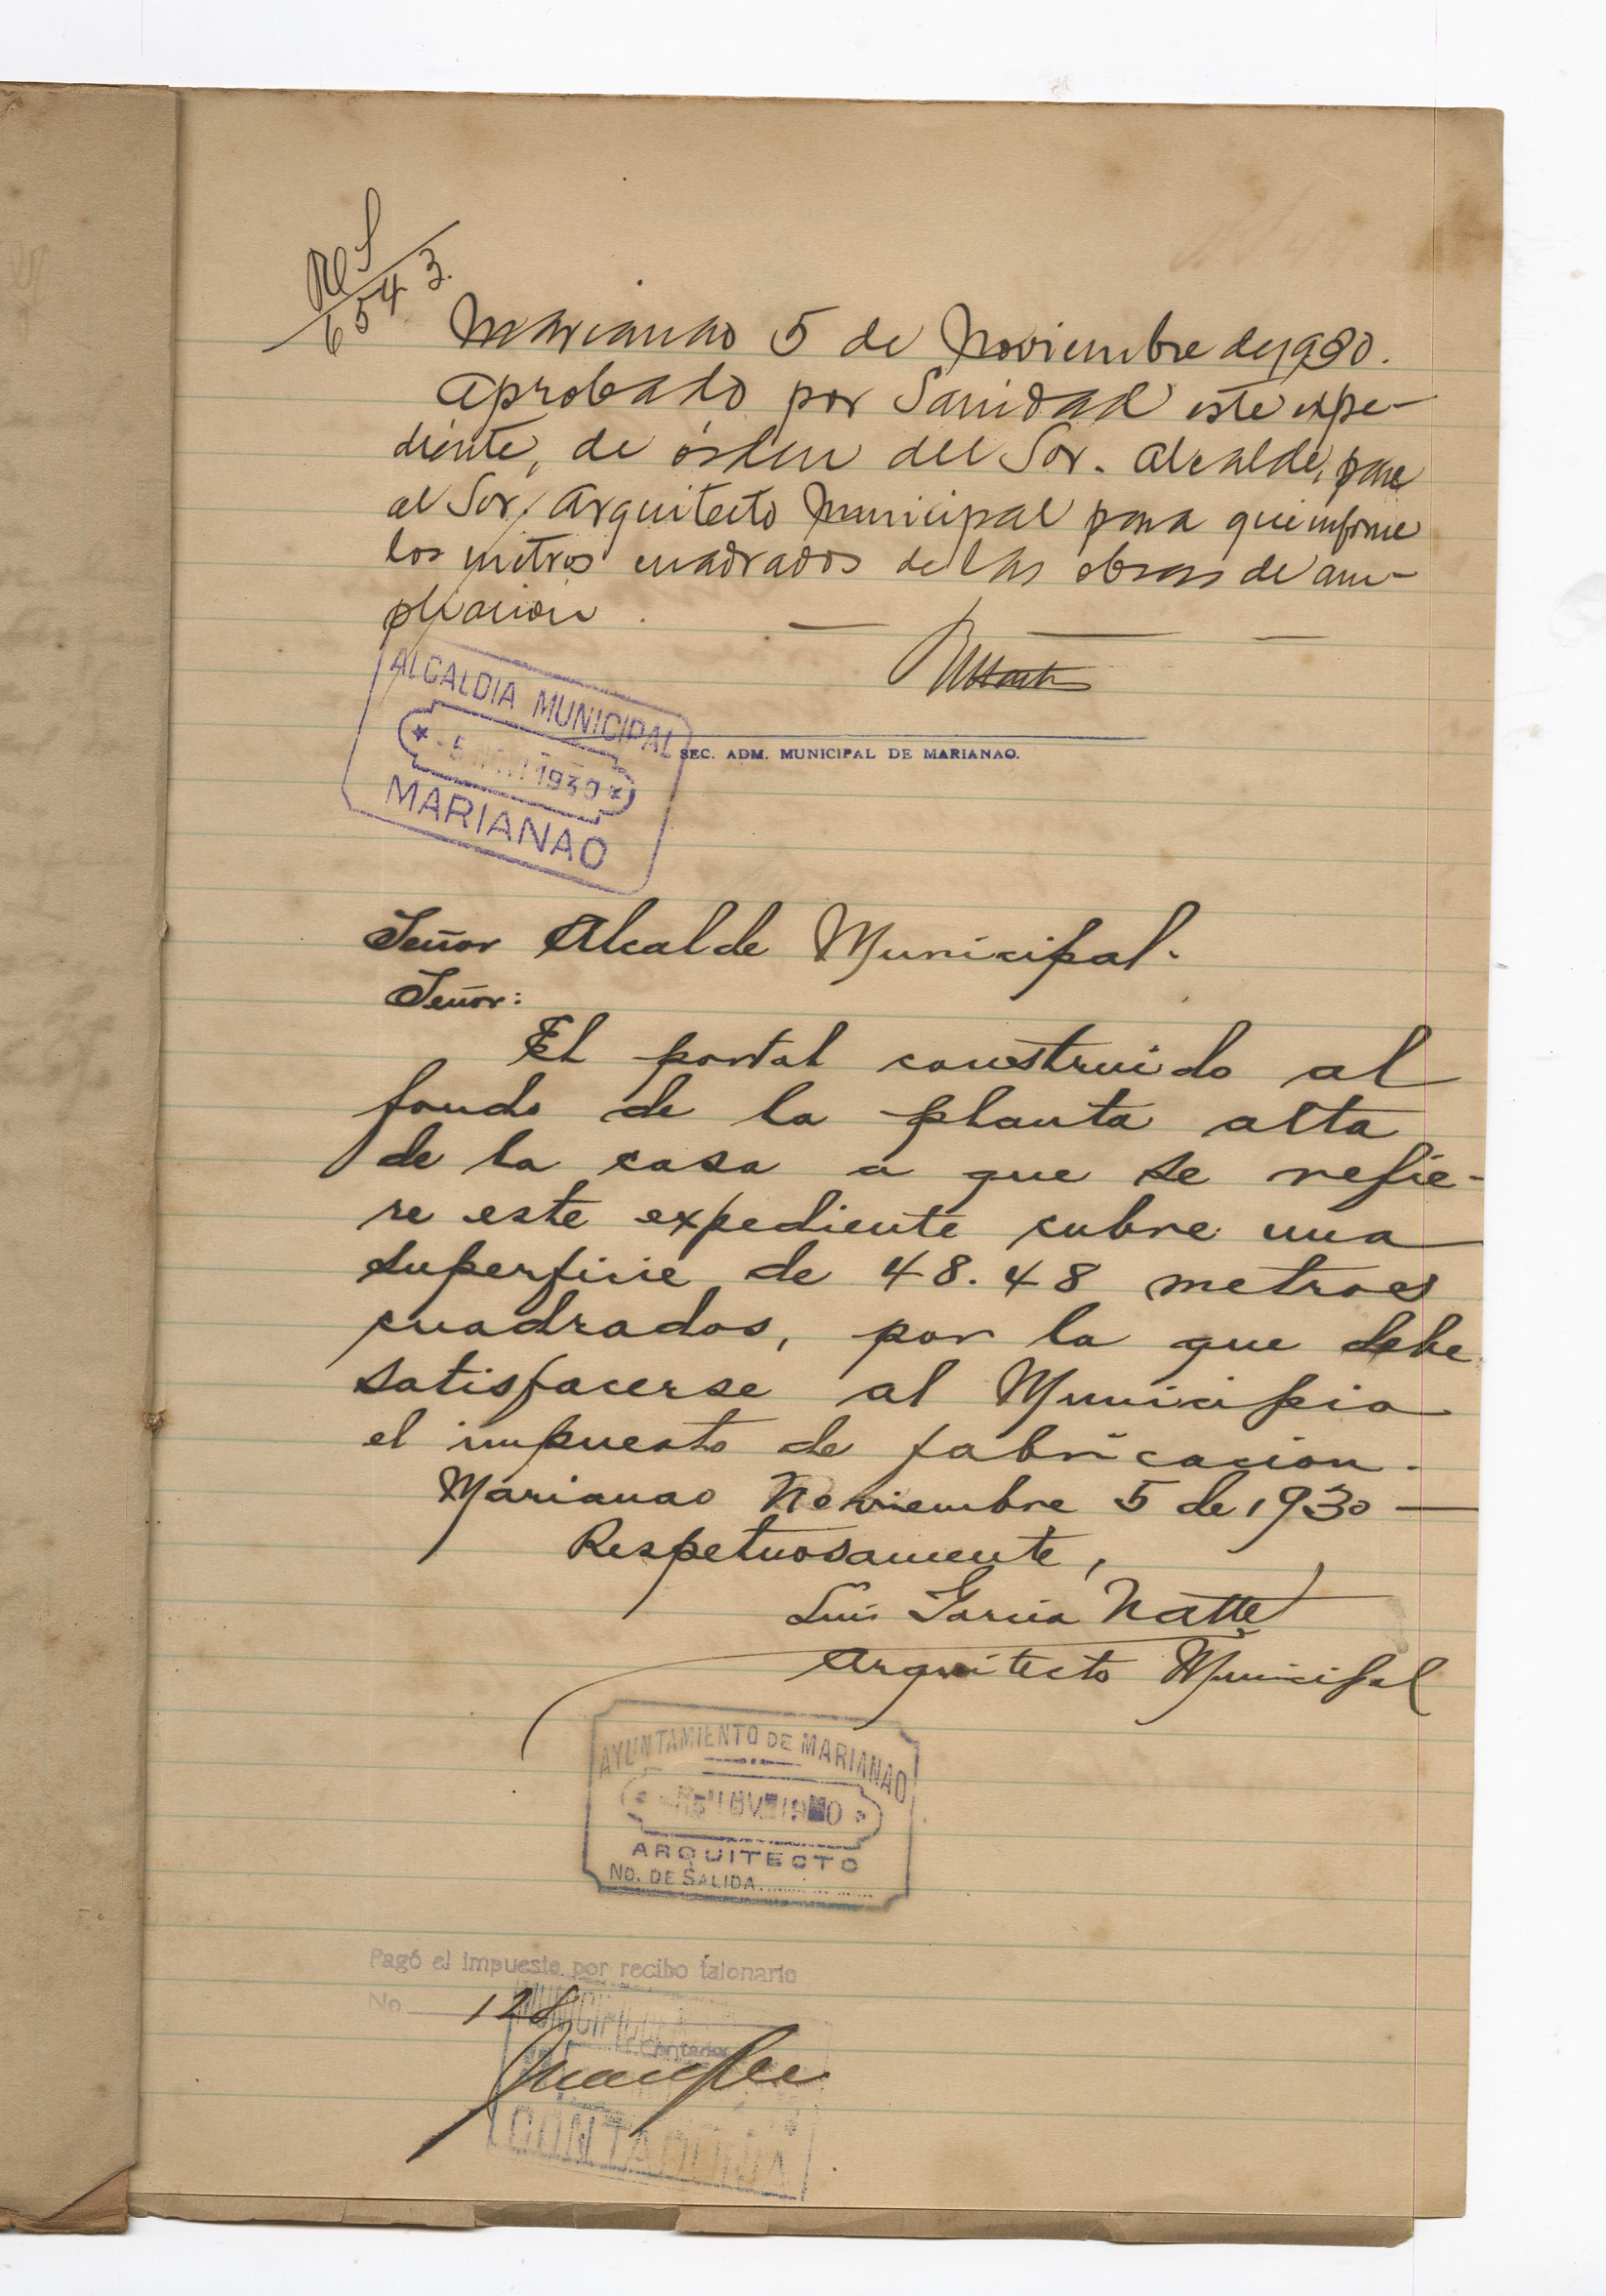 6543.
Marianao 5 de Noviembre de 1930.
Aprobado por Sanidad este expe-
diente, de órden del Sor. Alcalde, pase
al Sor. Arquitecto Municipal para que informe
los metros cuadrados de las obras de am-
pliacion.
ALCALDIA MUNICIPAL
5 NOV 1930
MARIANAO
SEC. ADM. MUNICIPAL DE MARIANAO.
Señor Alcalde Municipal.
Señor:
El portal construido al
fondo de la planta alta
de la casa a que se refie-
re este expediente cubre una
superficie de 48.48 metros
cuadrados, por la que debe
satisfacerse al Municipio
el impuesto de fabricacion.
Marianao Noviembre 5 de 1930
Respetuosamente,
Luis Garcia Nattes
Arquitecto Municipal
AYUNTAMIENTO DE MARIANAO
ARQUITECTO
NO. DE SALIDA
Pagó el impuesto por recibo talonario
No 128
Contador
CONTADURIA